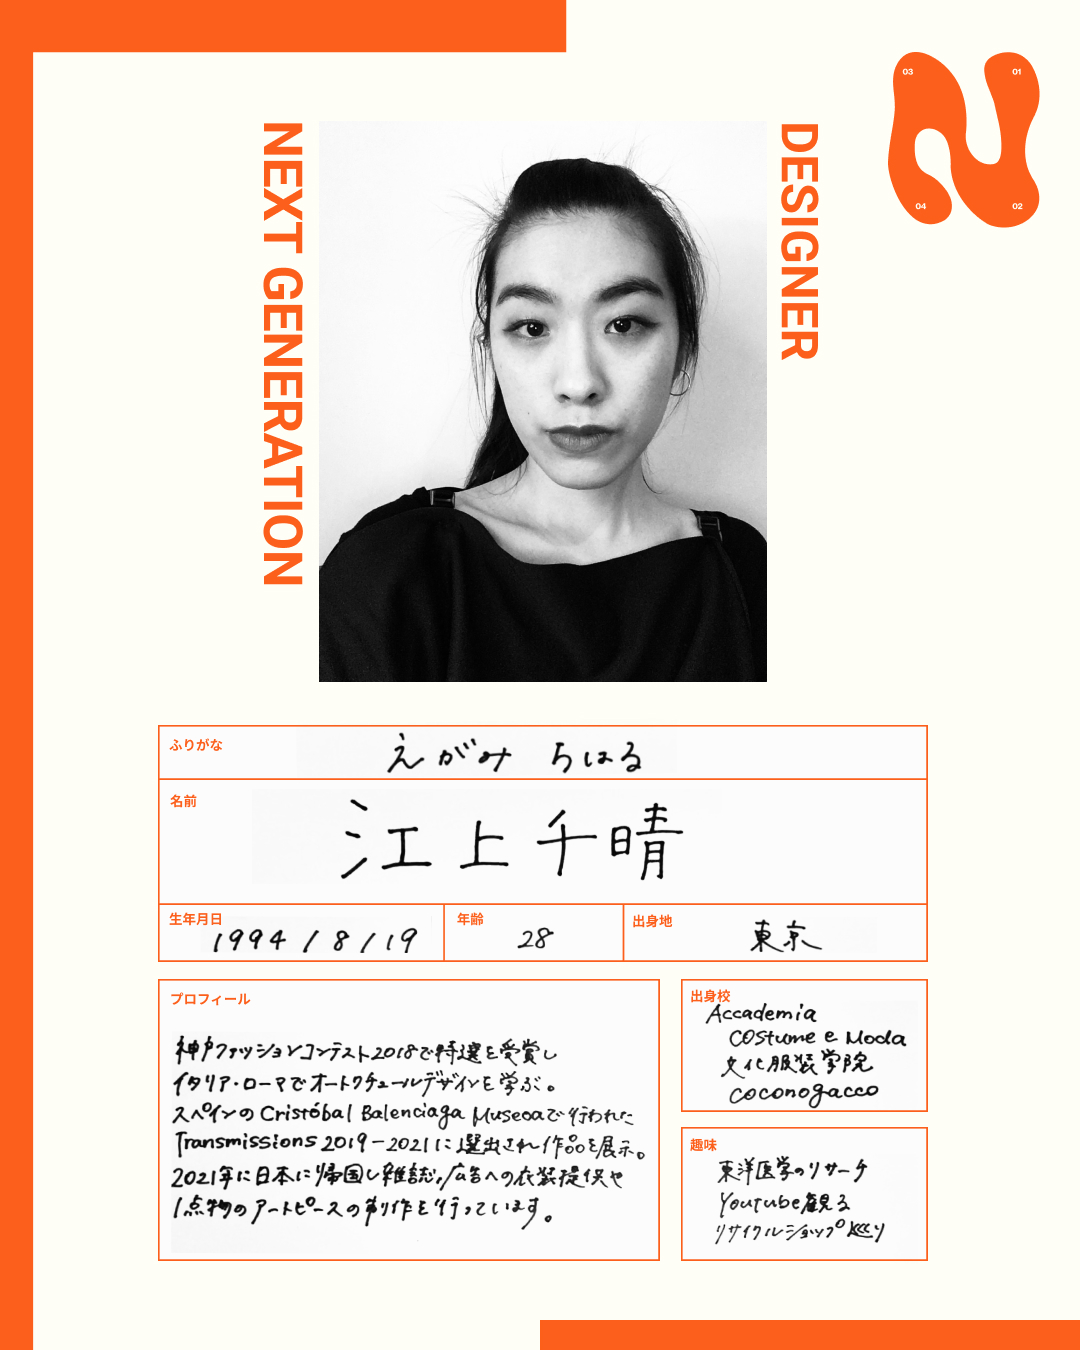 03
01
04
02
NEXT GENERATION
DESIGNER
ふりがな
えがみ ちはる
名前
江上千晴
生年月日
1994 / 8 / 19
年齢
28
出身地
東京
プロフィール
神戸ファッションコンテスト2018で特選を受賞し
イタリア・ローマでオートクチュールデザインを学ぶ。
スペインの Cristóbal Balenciaga Museoaで行われた
Transmissions 2019-2021に選出され作品を展示。
2021年に日本に帰国し雑誌,広告への衣装提供や
1点物のアートピースの制作を行っています。
出身校
Accademia
Costume e Moda
文化服装学院
coconogacco
趣味
東洋医学のリサーチ
Youtube観る
リサイクルショップ巡り